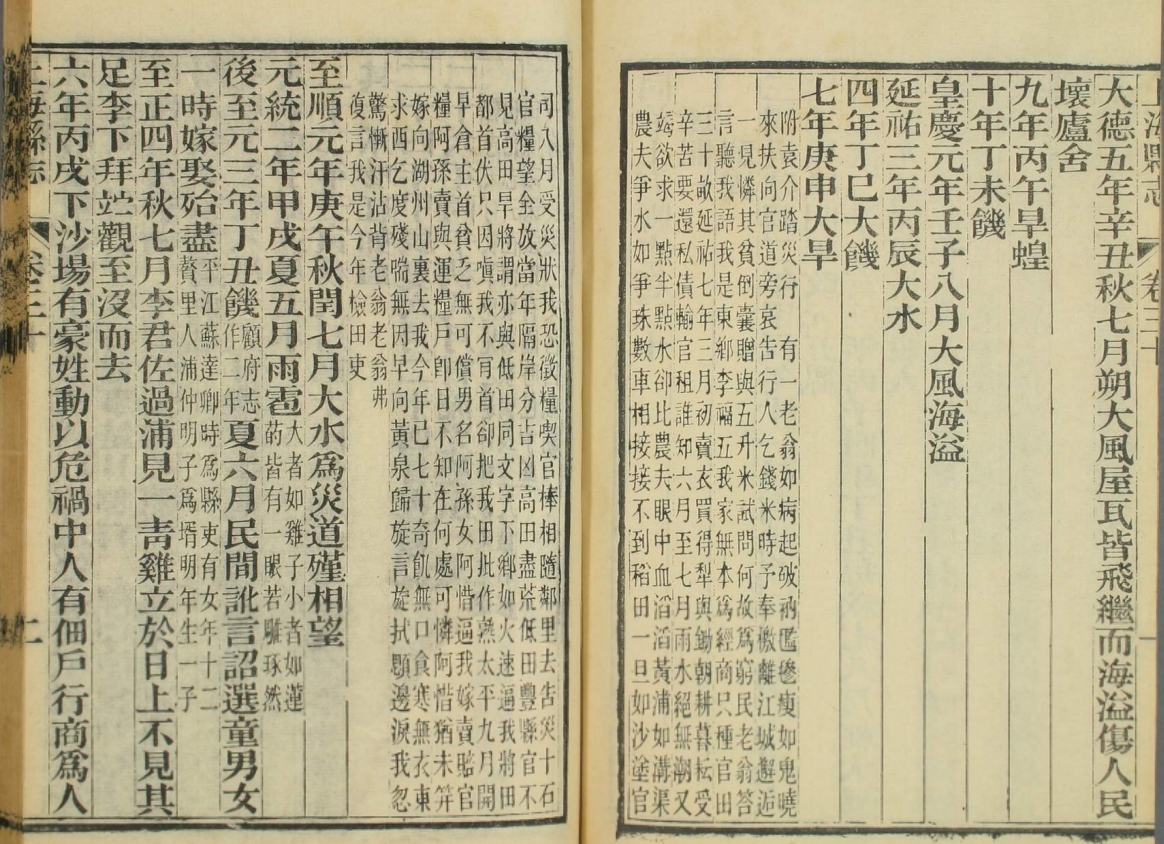 上海縣志
卷三十
一
大德五年辛丑秋七月朔大風屋瓦皆飛繼而海溢傷人民
壞廬舍
九年丙午旱蝗
十年丁未饑
皇慶元年壬子八月大風海溢
延祐三年丙辰大水
四年丁巳大饑
七年庚申大旱
附袁介踏災行　有一老翁如病起破衲毿瘦如鬼曉
來扶向官道旁哀告行人乞錢米時予奉檄離江城邂逅
一見憐其貧倒囊贈與五升米試問何故爲窮民老翁答
言聽我語我是東鄉李福五我家無本爲經商只種官田
三十畝延祐七年三月初賣衣買得犁與鋤朝耕暮耘受
辛苦要還私債輸官租誰知六月至七月雨水絕無潮又
竭欲求一點半點水卻比農夫眼中血滔滔黃浦如溝渠
農夫爭水如爭珠數車相接接不到稻田一旦如沙塗官
司八月受災狀我恐徵糧喫官棒相隨鄰里去告災十石
官糧望全放當年隔岸分吉凶高田盡荒低田豐縣官不
見高田旱將謂亦與低田同文字下鄉如火速逼我將田
都首伏只因嗔我不肎首卻把我田批作熟太平九月開
旱倉主首貧乏無可償男名阿孫女阿惜逼我嫁賣賠官
糧阿孫賣與運糧戶卽日不知在何處可憐阿惜猶未笄
嫁向湖州山裏去我今年已七十奇飢無口食寒無衣東
求西乞度殘喘無因早向黃泉歸旋言旋拭顋邊淚我忽
驚慚汗沾背老翁老翁弗
復言我是今年檢田吏
至順元年庚午秋閏七月大水爲災道殣相望
元統二年甲戌夏五月雨雹大者如雞子小者如蓮菂皆有一眼若雕琢然
後至元三年丁丑饑顧府志作二年夏六月民間訛言詔選童男女
一時嫁娶殆盡平江蘇達卿時爲縣吏有女年十二贅里人浦仲明子爲壻明年生一子
至正四年秋七月李君佐過浦見一靑雞立於日上不見其
足李下拜竝觀至沒而去
六年丙戌下沙場有豪姓動以危禍中人有佃戶行商爲人
上海縣志
卷三十
二